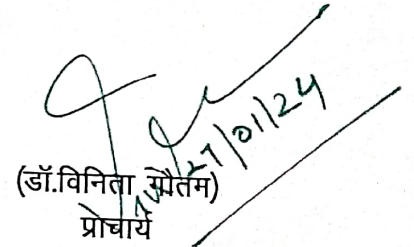 27/01/24
(डॉ.विनिता गौतम)
प्राचार्य